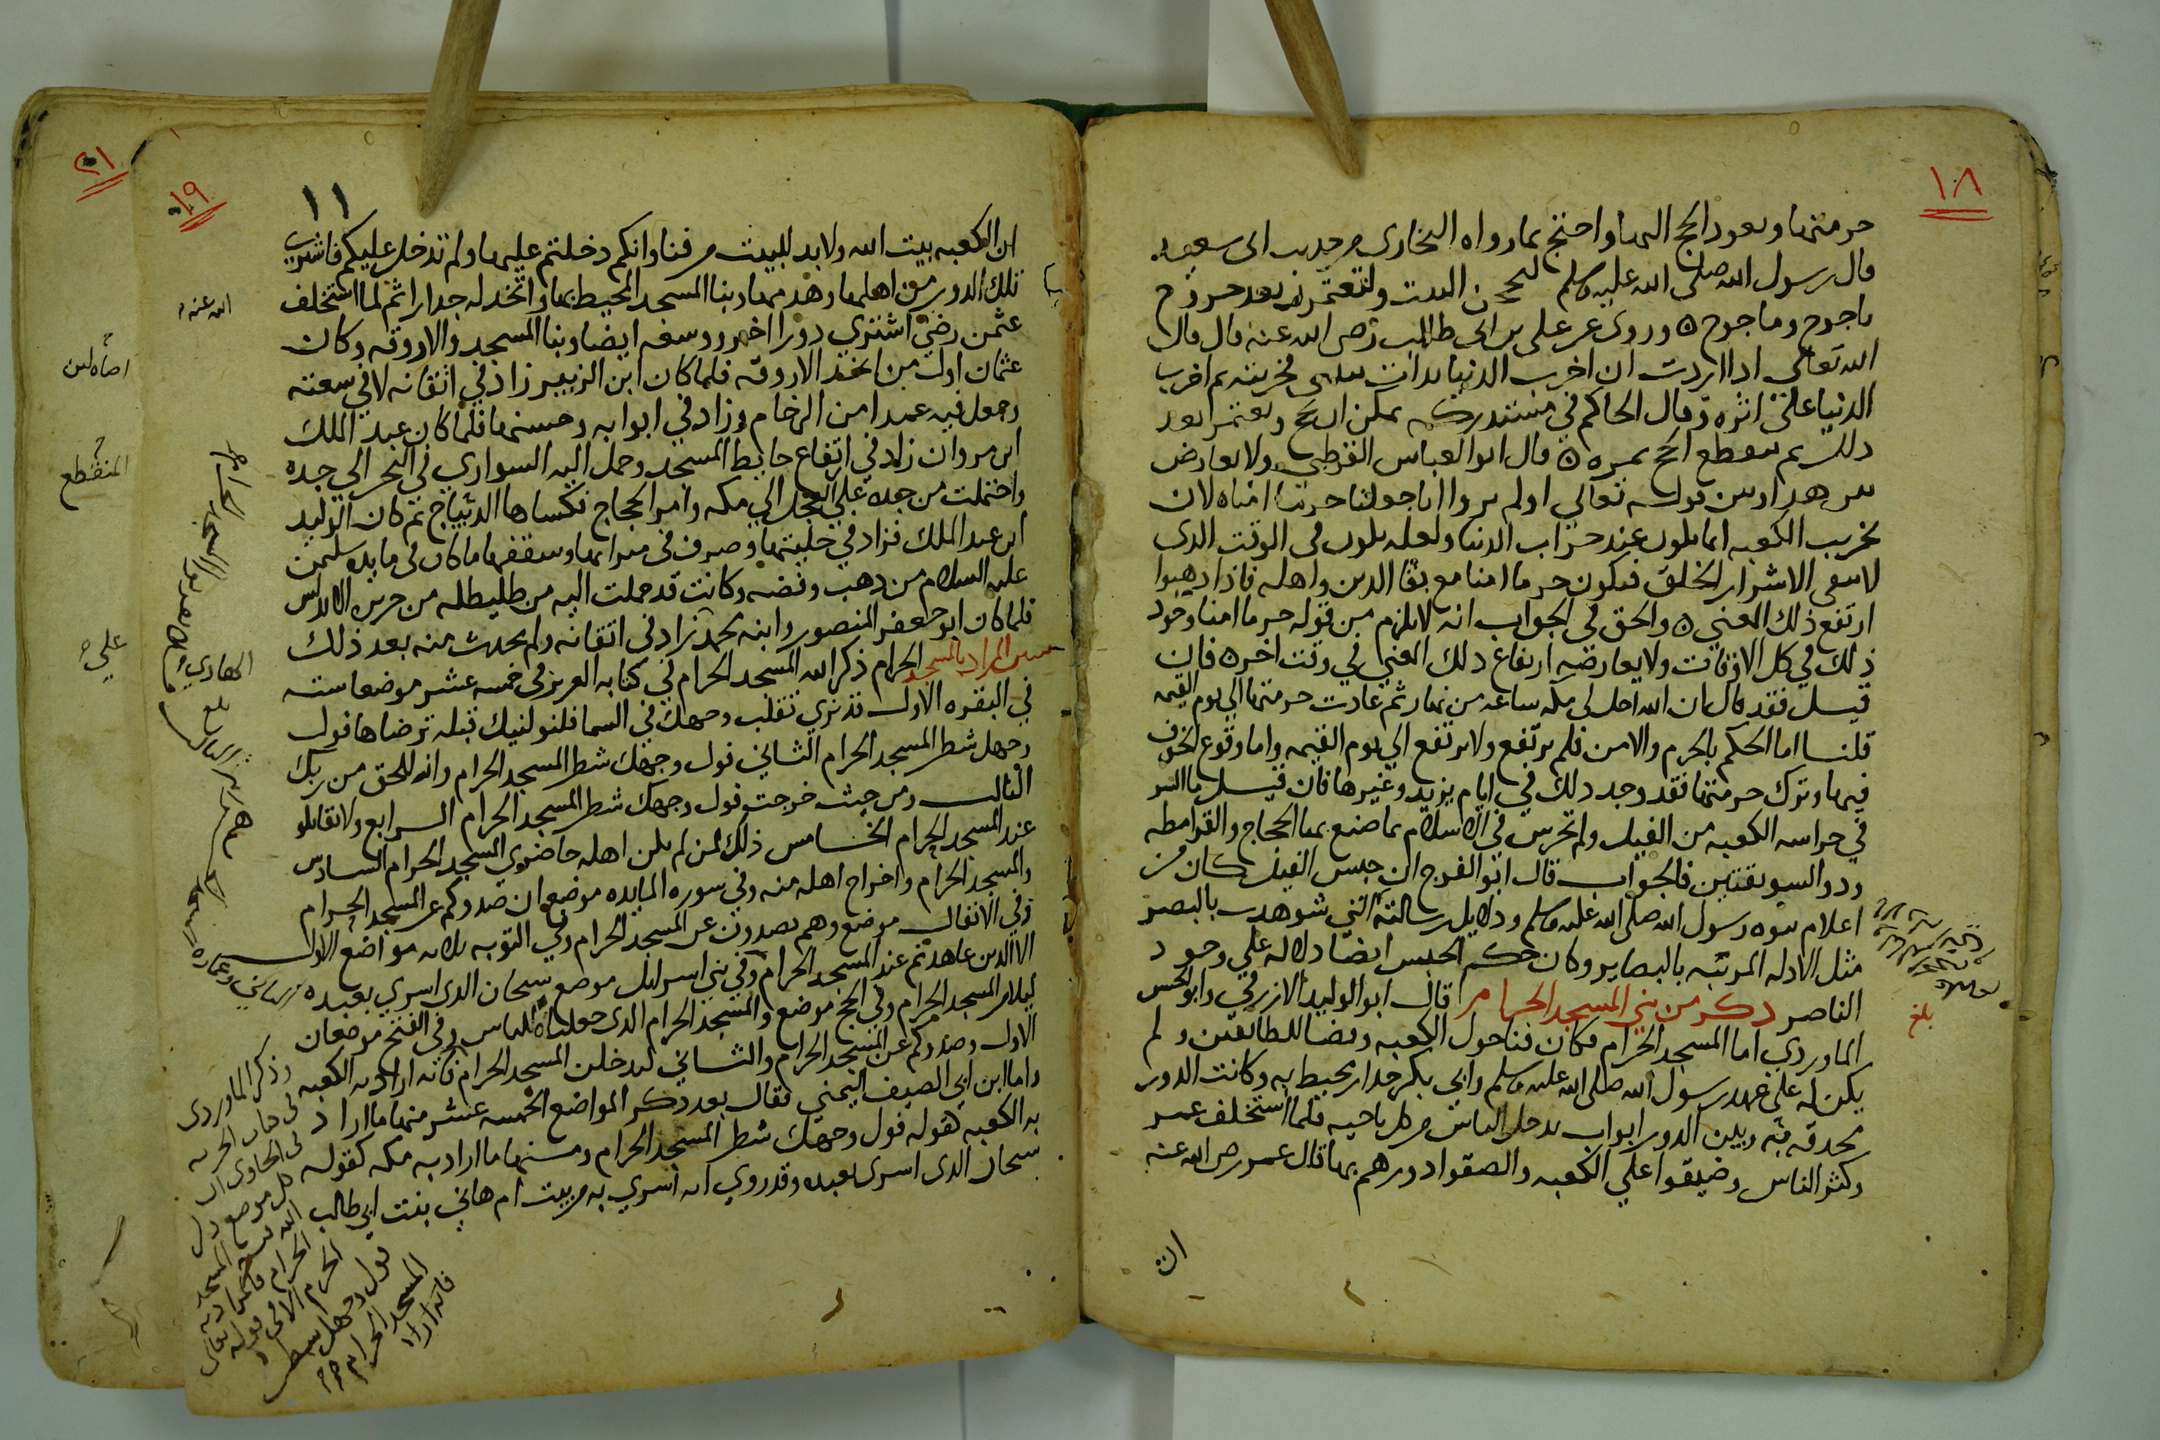 ١٨
حرمتها ويعود الحج اليها واحتج بما رواه البخاري من حديث ابي سعيد
قال رسول الله صلى الله عليه وسلم ليحجن البيت وليعتمرن بعد خروج
ياجوج وماجوج ه وروى عن علي بن ابي طالب رضي الله عنه قال قال
الله تعالى اذا اردت ان اخرب الدنيا بدات ببيتي فخربته ثم اخرب
الدنيا على اثره وقال الحاكم في مستدركه يمكن ان يحج ويعتمر بعد
ذلك ثم ينقطع الحج بمره ه قال ابو العباس القرطبي ولا تعارض
بين هذا وبين قوله تعالى اولم يروا انا جعلنا حرما امنا لان
تخريب الكعبه انما يكون عند خراب الدنيا ولعله يكون في الوقت الذي
لا يبقى الا شرار الخلق فيكون حرما امنا مع بقا الدين واهله فاذا ذهبوا
ارتفع ذلك المعني ه والحق في الجواب انه لا يلزم من قوله حرما امنا وجود
ذلك في كل الاوقات ولا يعارضه ارتفاع ذلك المعني في وقت اخر ه فان
قيل فقد قال ان الله احل لي مكه ساعه من نهار ثم عادت حرمتها الى يوم القيمه
قلنا اما الحكم بالحرم والامن فلم يرتفع ولا يرتفع الي يوم القيمه واما وقوع الخوف
فيها وترك حرمتها فقد وجد ذلك في ايام يزيد وغيرها فان قيل ما السر
في حراسه الكعبه من الفيل ولم تحرس في الاسلام بما صنع بها الحجاج والقرامطه
وذو السويقتين فالجواب قال ابو الفرج ان حبس الفيل كان من
اعلام نبوه رسول الله صلى الله عليه وسلم ودلايل رسالته التي شوهدت بالبصر
مثل الادله المرتبه بالبصاير وكان حكم الحبس ايضا دلاله علي وجود
الناصر ذكر من بني المسجد الحرام قال ابو الوليد الازرقي وابو الحسن
الماوردي اما المسجد الحرام فكان فنا حول الكعبه وفضا للطائفين ولم
يكن له على عهد رسول الله صلى الله عليه وسلم وابي بكر جدار يحيط به وكانت الدور
محدقه به وبين الدور ابواب يدخل الناس من كل ناحيه فلما استخلف عمر
وكثر الناس وضيقوا علي الكعبه والصقوا دورهم بها قال عمر رضي الله عنه
ان
بلغ
١٩
١١
ان الكعبه بيت الله ولابد للبيت من فنا وانكم دخلتم عليها ولم تدخل عليكم فاشترى
تلك الدور من اهلها وهدمها وبنا المسجد المحيط بها واتخذ له جدارا ثم لما استخلف
عثمن رضي اشتري دورا اخر ووسعه ايضا وبنا المسجد والاروقه وكان
الله عنه
عثمان اول من اتخذ الاروقه فلما كان ابن الزبير زاد في اتقانه لا في سعته
وجعل فيه عمدا من الرخام وزاد في ابوابه وحسنها فلما كان عبد الملك
ابن مروان زاد في ارتفاع حايط المسجد وحمل اليه السواري في البحر الي جده
واحتملت من جده علي العجل الي مكه وامر الحجاج فكساها الديباج ثم كان الوليد
ابن عبد الملك فزاد في حليتها وصرف في ميزابها وسقفها ما كان في مايده سليمن
عليه السلام من ذهب وفضه وكانت قد حملت اليه من طليطله من جزيره الاندلس
فلما كان ابو جعفر المنصور وابنه محمد زاد في اتقانه ولم يحدث منه بعد ذلك
المراد بالمسجد الحرام ذكر الله المسجد الحرام في كتابه العزيز في خمسه عشر موضعا سته
في البقره الاول قد نري تقلب وجهك في السما فلنولنيك قبله ترضاها فول
وجهك شطر المسجد الحرام الثاني فول وجهك شطر المسجد الحرام وانه للحق من ربك
الثالث ومن حيث خرجت فول وجهك شطر المسجد الحرام الرابع ولا تقاتلو
عند المسجد الحرام الخامس ذلك لمن لم يكن اهله حاضري المسجد الحرام السادس
والمسجد الحرام واخراج اهله منه وفي سوره المايده موضع ان صدوكم عن المسجد الحرام
وفي الانفال موضع وهم يصدون عن المسجد الحرام وفي التوبه ثلاثه مواضع الاول
الا الذين عاهدتم عند المسجد الحرام وفي بني اسرايل موضع سبحان الذي اسري بعبده
ليلا من المسجد الحرام وفي الحج موضع والمسجد الحرام الذي جعلناه للناس وفي الفتح موضعان
الاول وصدوكم عن المسجد الحرام والثاني لتدخلن المسجد الحرام فانه اراد به الكعبه
واما ابن ابي الصيف اليمني فقال بعد ذكر المواضع الخمسه عشر منها ما اراد
به الكعبه كقوله فول وجهك شطر المسجد الحرام ومنها ما اراد به مكه كقوله
سبحان الذي اسرى بعبده وقد روي انه اسري به من بيت ام هاني بنت ابي طالب
وذكر الماوردي
في الحاوي ان
كل موضع ذكر
الله المسجد
الحرام فالمراد به
الحرم الا في قوله تعالى
فول وجهك شطر
المسجد الحرام
فانه اراد
٢١
المنقطع
علي